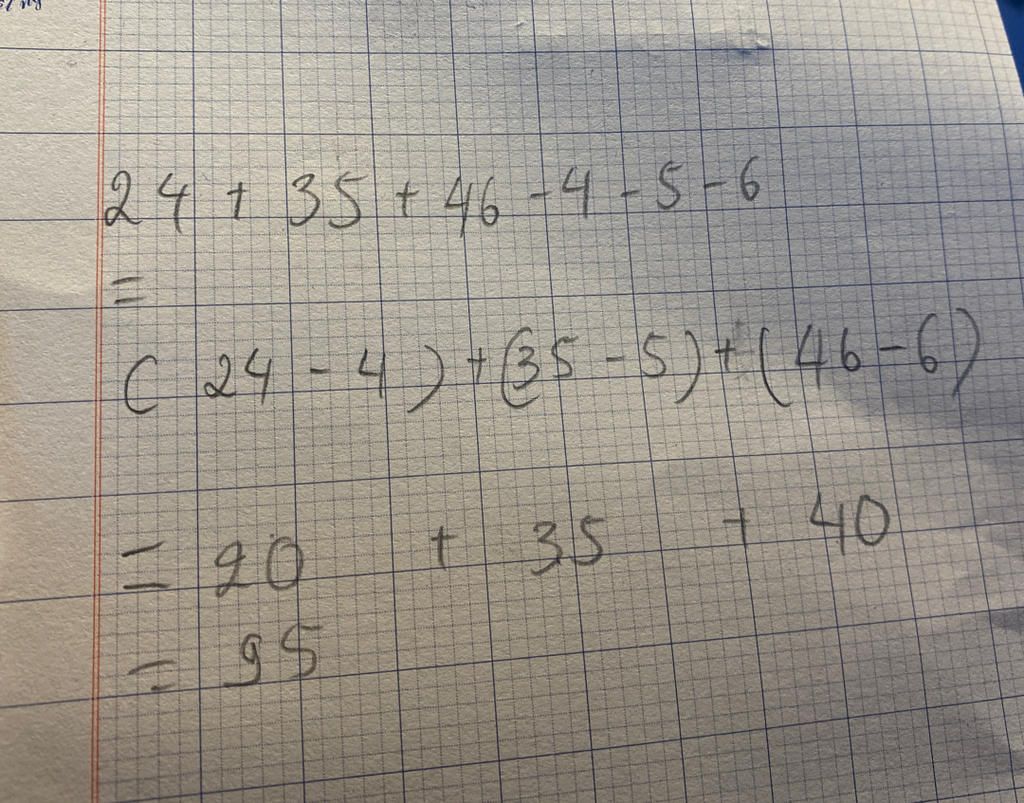 24 + 35 + 46 - 4 - 5 - 6
=
( 24 - 4 ) + (35 - 5) + (46 - 6)
= 20 + 35 + 40
= 95